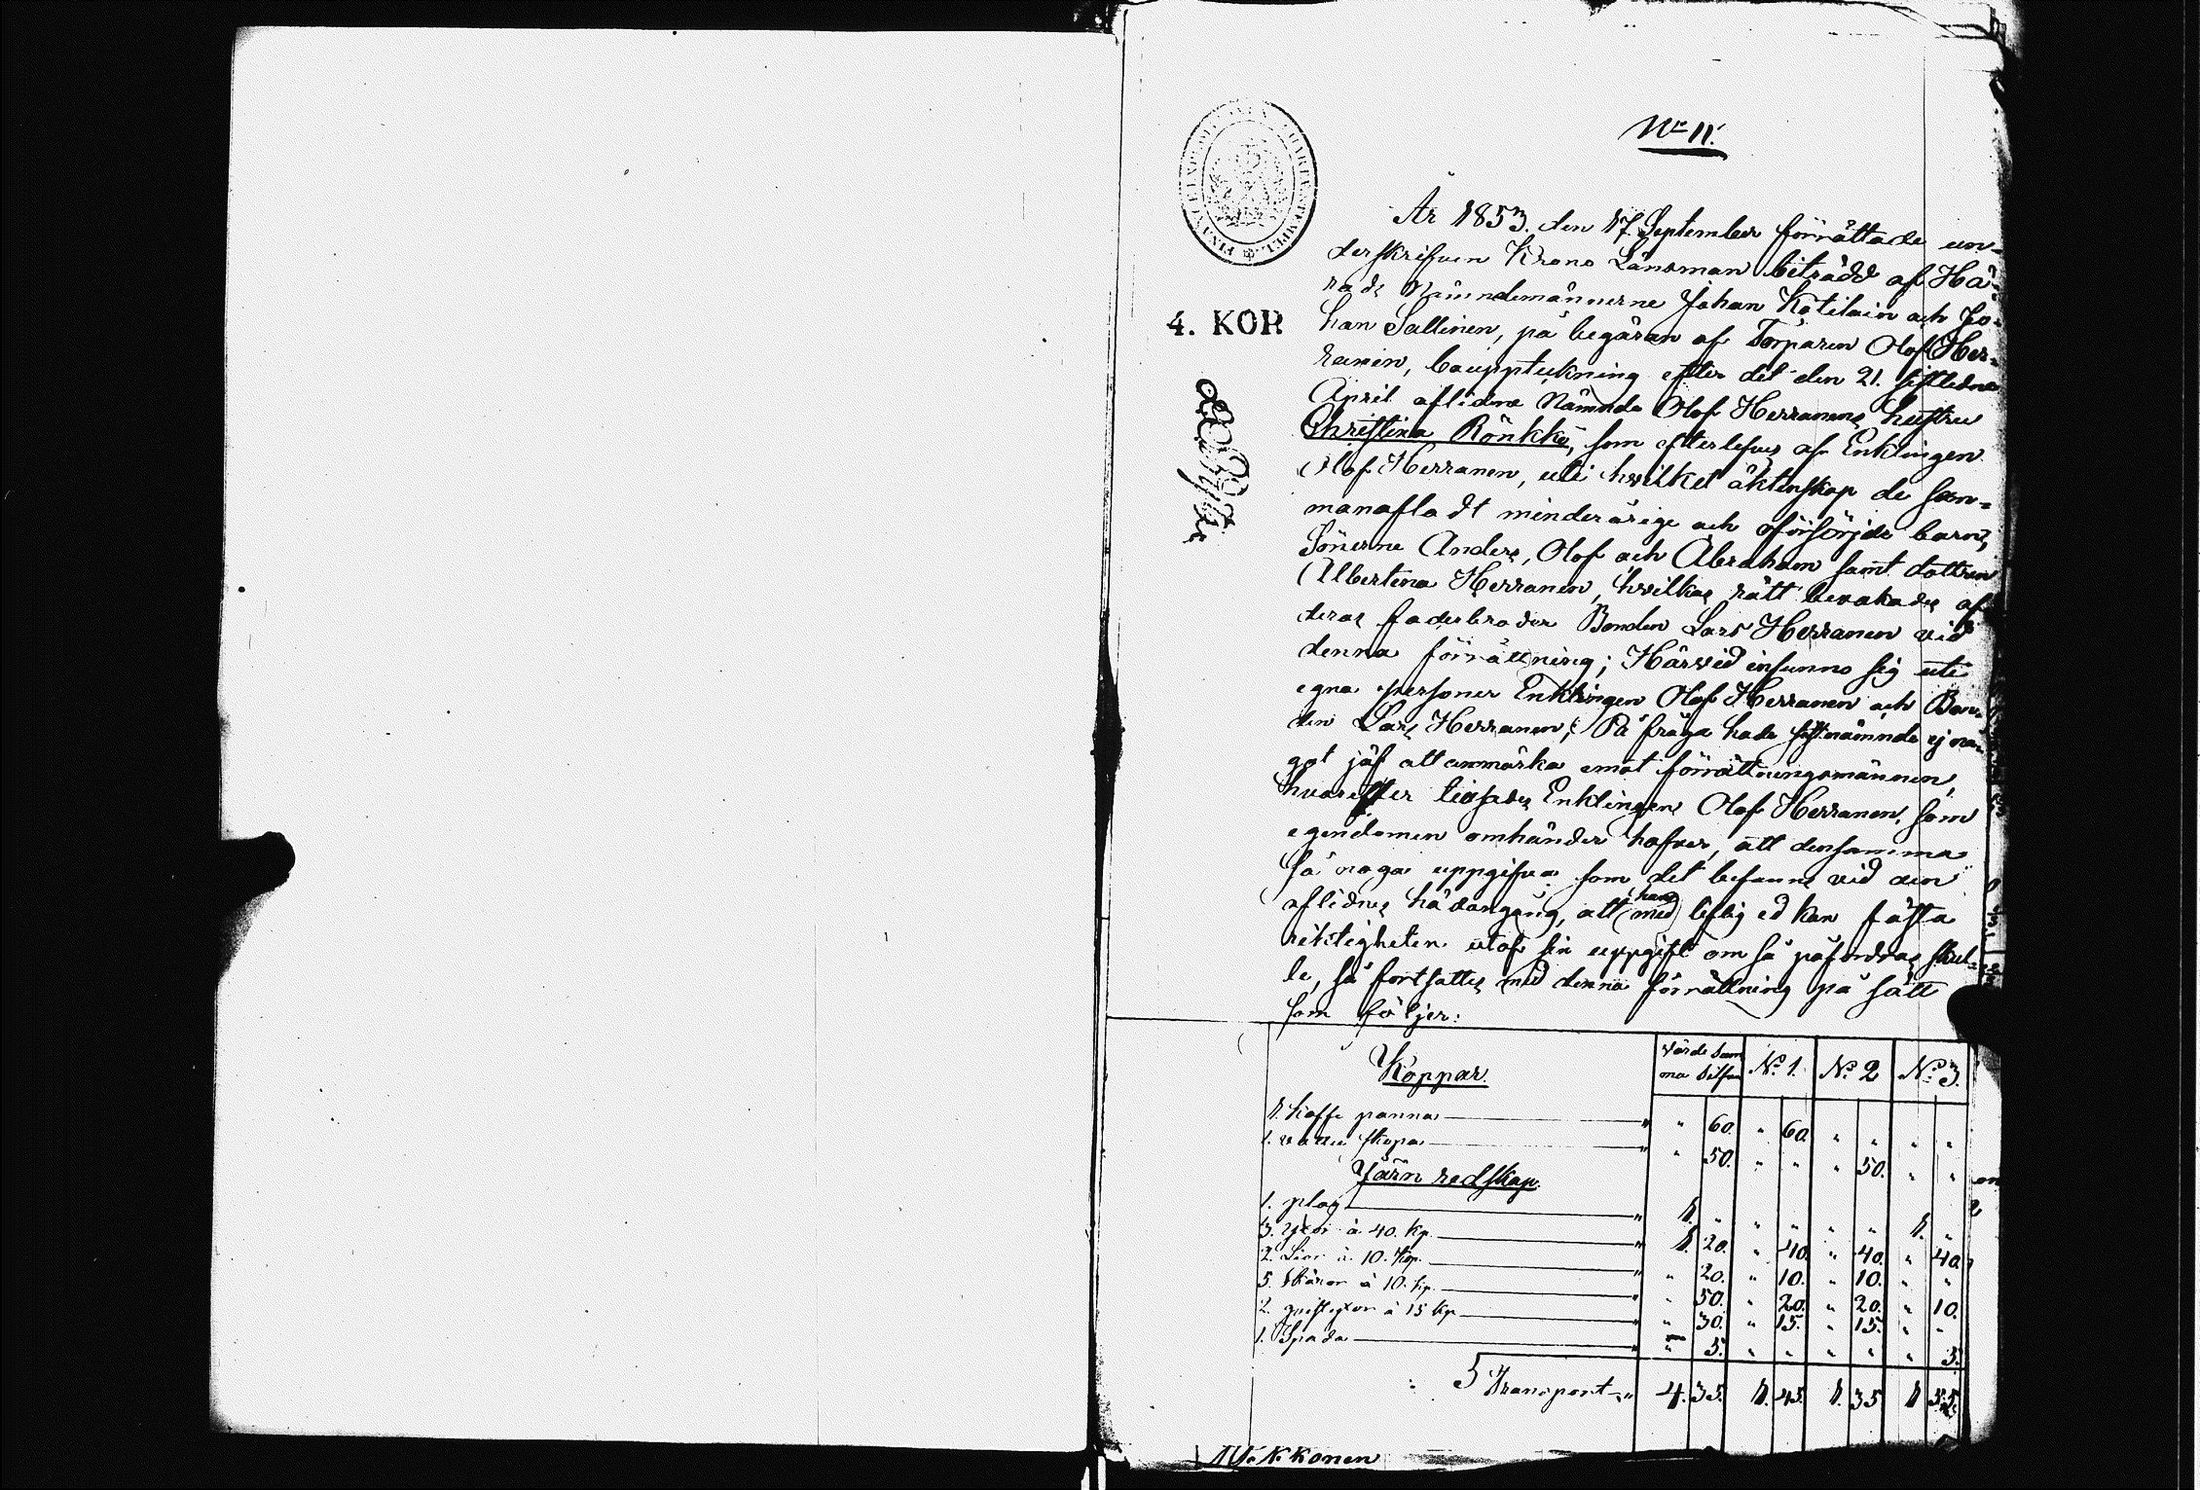 No 11.
År 1853. den 17. September förrättade un-
derskrifven Krono Länsman biträdd af Hä-
rads Nämndemännerne Johan Kotilain och Jo-
han Sallinen, på begäran af Torparen Olof Her-
ranen, bouppteckning efter det den 21. sistledne
April aflidne Nämnde Olof Herranens hustru
Christina Rönkkö, som efterlefves af Enklingen
Olof Herranen, uti hvilket äktenskap de sam-
manafladt minderårige och oförsörjde barn,
Sönerne Anders, Olof och Abraham samt dottren
Albertina Herranen, hvilkas rätt bevakades af
deras faderbroder Bonden Lars Herranen vid
denna förrättning; Härvid infunno sig uti
egna personer Enklingen Olof Herranen och Bon-
den Lars Herranen; På fråga hade sistnämnde ej nå-
got jäf att anmärka emot förrättningsmännen,
hvarefter Enklingen Olof Herranen, som
egendomen omhänder hafver, att densamma
så noga uppgifva som det befanns vid den
aflidnes hädangång, att han med liflig ed kan fästa
riktigheten utaf sin uppgift om så påfordras skul-
le, så fortsattes med denna förrättning på sätt
som följer:
4. KOP
Koppar.
Värde Sum
ma Silfver
No 1. No 2 No 3.
1. Kaffe panna " " 60. " 60. " " " "
1. skopa " " 50. " " " 50. " "
Järn redskap.
1. plog " 1. " " " " " 1. "
3. yxor à 40. kp. " 1. 20. " 40. " 40. " 40.
2. Liar à 10. kop. " " 20. " 10. " 10. " "
5. Skäror à 10. kp. " " 50. " 20. " 20. " 10.
2. à 15 kp " " 30. " 15. " 15. " "
1. Spada " " 5. " " " " " 5.
Transport " 4. 35. 1. 45. 1. 35 1 55.